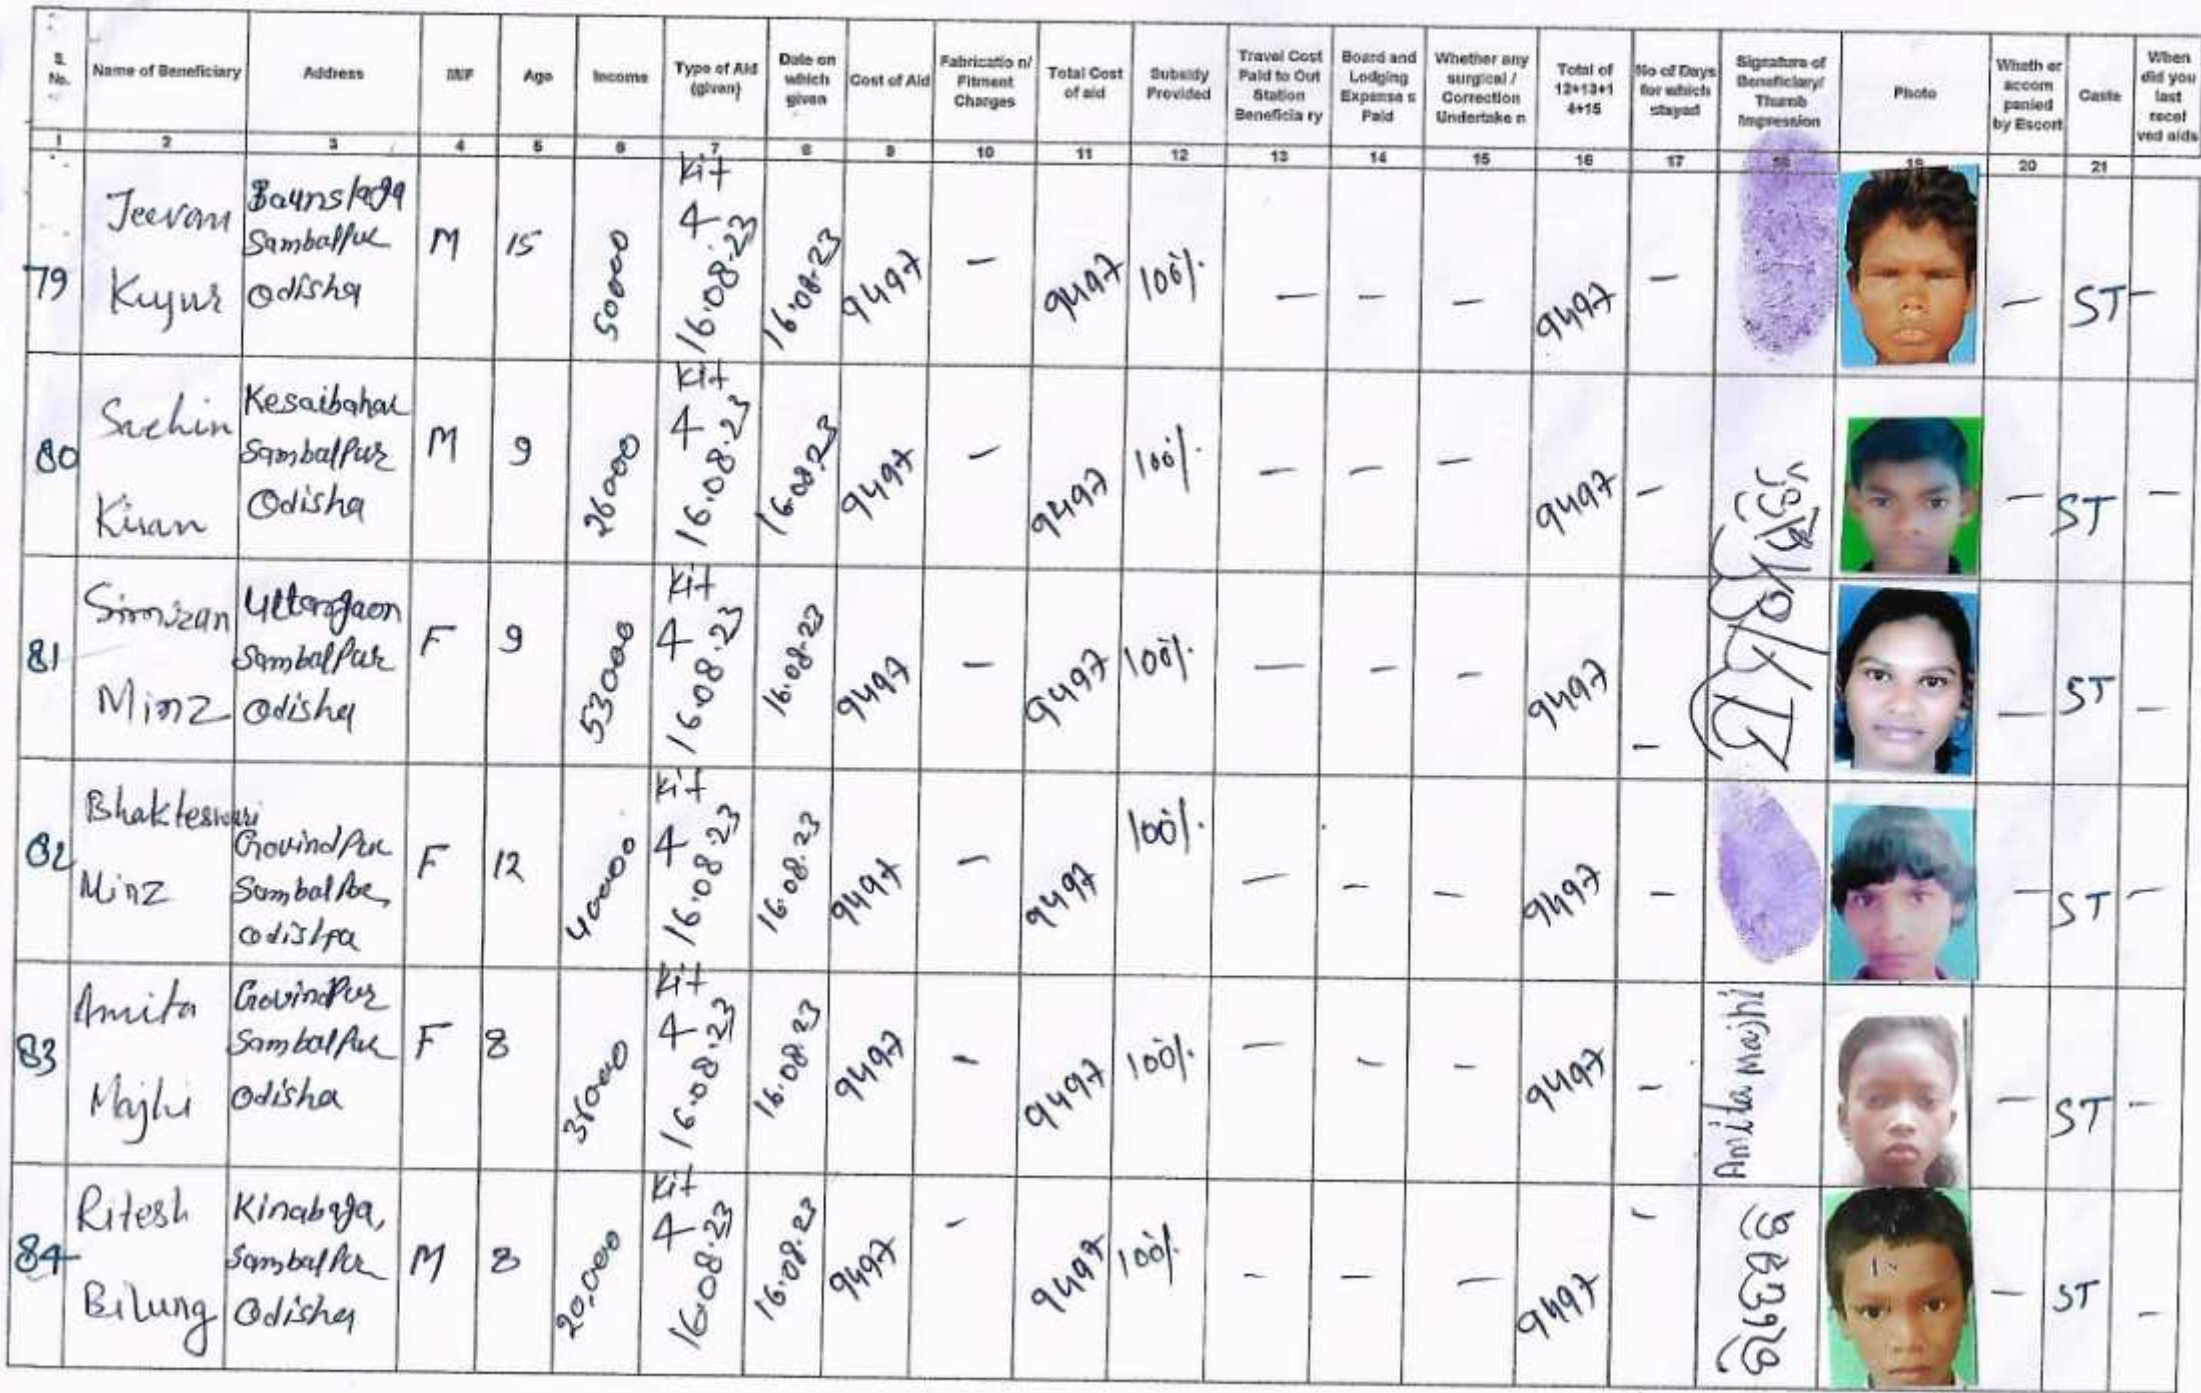 S. No. Name of Beneficiary Address M/F Age Income Type of Aid (given) Date on which given Cost of Aid Fabricatio n/ Fitment Charges Total Cost of aid Subsidy Provided Travel Cost Paid to Out Station Beneficia ry Board and Lodging Expense s Paid Whether any surgical / Correction Undertake n Total of 12+13+1 4+15 No of Days for which stayed Signature of Beneficiary/ Thumb Impression Photo Wheth er accom panied by Escort Caste When did you last recei ved aids
1 2 3 4 5 6 7 8 9 10 11 12 13 14 15 16 17 18 19 20 21
79 Jeevan Kujur Sambalpur Odisha M 15 50000 Kit 4 16.08.23 16.08.23 9497 — 9497 100% — — — 9497 — — ST —
80 Sachin Kiran Kesaibahal Sambalpur Odisha M 9 26000 Kit 4 16.08.23 16.08.23 9497 — 9497 100% — — — 9497 — — ST —
81 Simran Minz Sambalpur Odisha F 9 53000 Kit 4 16.08.23 16.08.23 9497 — 9497 100% — — — 9497 — — ST —
82 Bhakteswari Minz Govindpur Sambalpur, Odisha F 12 40000 Kit 4 16.08.23 16.08.23 9497 — 9497 100% — — — 9497 — — ST —
83 Amita Majhi Govindpur Sambalpur Odisha F 8 36000 Kit 4 16.08.23 16.08.23 9497 — 9497 100% — — — 9497 — Amita Majhi — ST —
84 Ritesh Bilung Sambalpur Odisha M 8 20,000 Kit 4 16.08.23 16.08.23 9497 — 9497 100% — — — 9497 — — ST —